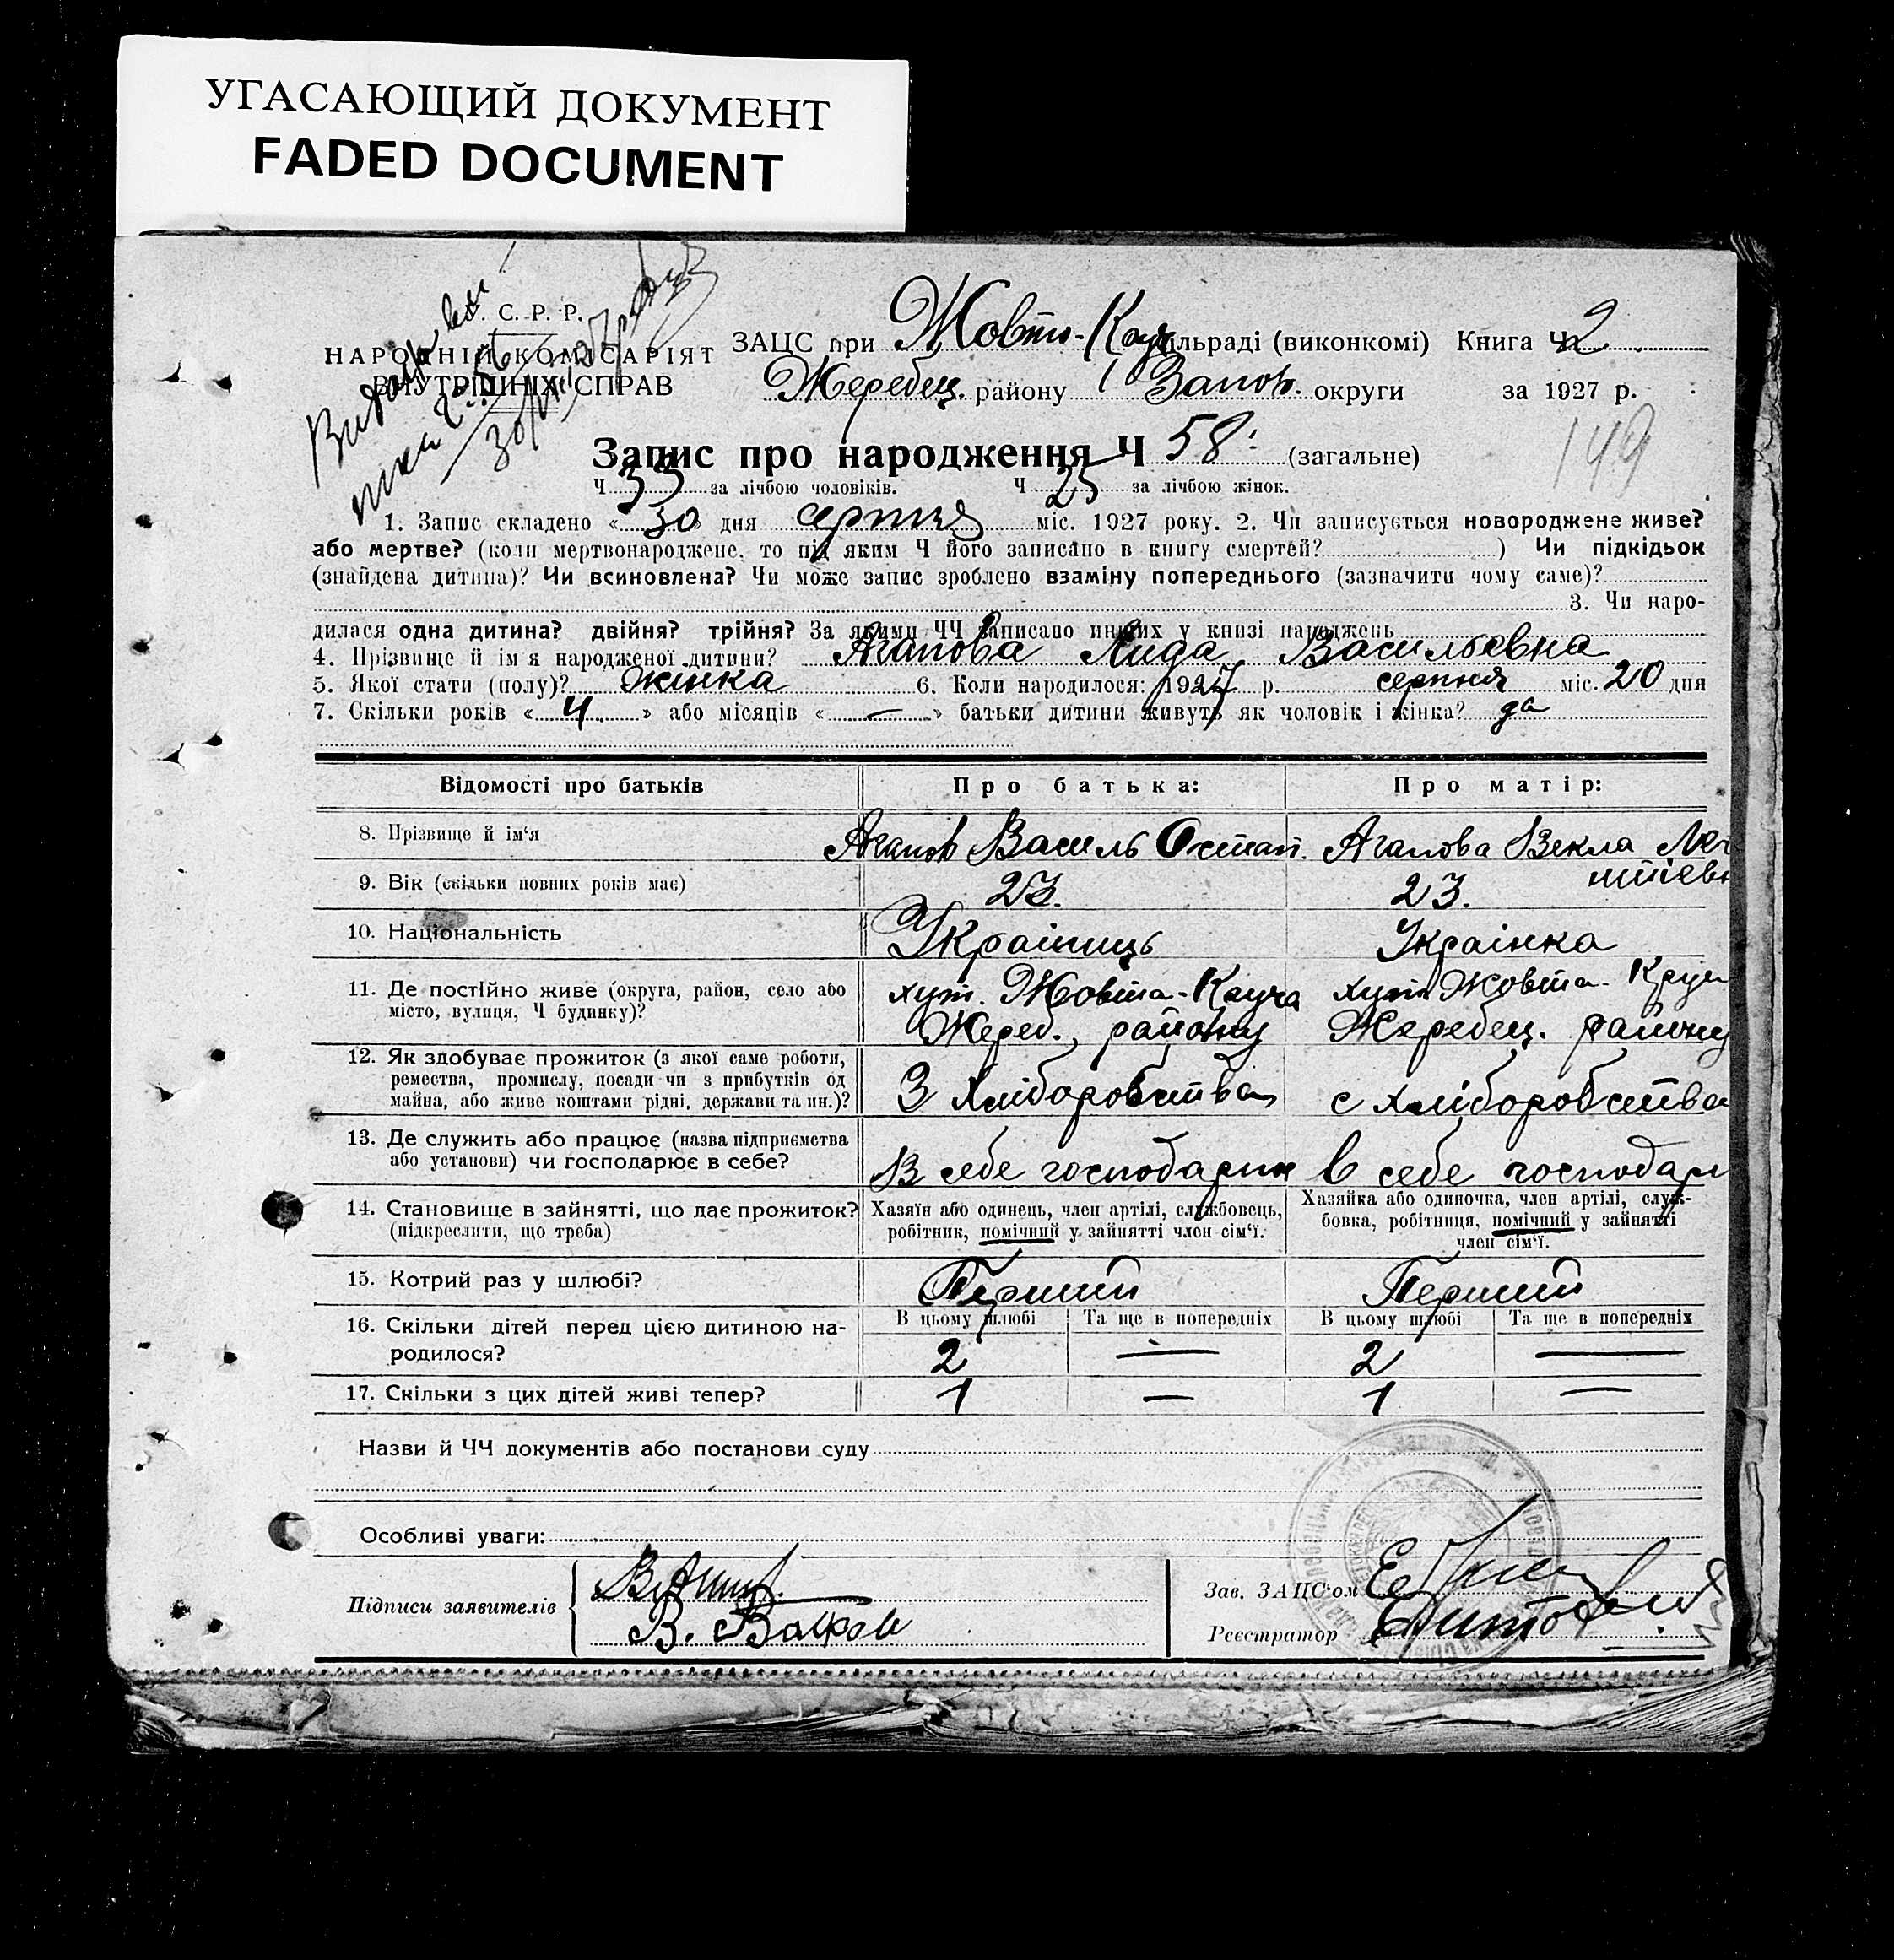 УГАСАЮЩИЙ ДОКУМЕНТ
FADED DOCUMENT
У. С. Р. Р.
НАРОДНІЙ КОМІСАРІЯТ
ВНУТРІШНІХ СПРАВ
ЗАЦС при Жовто-Круч сільраді (виконкомі) Книга Ч 2
Жеребец. району Запоз. округи за 1927 р.
149
Запис про народження Ч 58 (загальне)
Ч 33 за лічбою чоловіків. Ч 25 за лічбою жінок.
1. Запис складено «30» дня серпня міс. 1927 року. 2. Чи записується новороджене живе?
або мертве? (коли мертвонароджене, то під яким Ч його записано в книгу смертей? ) Чи підкідьок
(знайдена дитина)? Чи всиновлена? Чи може запис зроблено взаміну попереднього (зазначити чому саме)?
3. Чи наро-
дилася одна дитина? двійня? трійня? За якими ЧЧ записано инших у книзі народжень
4. Прізвище й ім'я народженої дитини? Агапова Лида Васильевна
5. Якої стати (полу)? жінка 6. Коли народилося: 1927 р. серпня міс. 20 дня
7. Скільки років «4» або місяців «—» батьки дитини живуть як чоловік і жінка? да
Відомості про батьків Про батька: Про матір:
8. Прізвище й ім'я Агапов Василь Остап. Агапова Векла
9. Вік (скільки повних років має) 23. 23.
10. Національність Україниць Українка
11. Де постійно живе (округа, район, село або місто, вулиця, Ч будинку)?
хут. Жовта-Круча хут. Жовта-Круч
Жереб., району Жеребец. району
12. Як здобуває прожиток (з якої саме роботи,
ремества, промислу, посади чи з прибутків од
майна, або живе коштами рідні, держави та ин.)?
З хліборобства с хліборобства
13. Де служить або працює (назва підприємства
або установи) чи господарює в себе?
В себе господарни в себе господар
14. Становище в зайнятті, що дає прожиток?
(підкреслити, що треба)
Хазяїн або одинець, член артілі, службовець,
робітник, помічний у зайнятті член сім'ї.
Хазяйка або одиночка, член артілі, служ-
бовка, робітниця, помічний у зайнятті
член сім'ї.
15. Котрий раз у шлюбі? Перший Перший
16. Скільки дітей перед цією дитиною на-
родилося?
В цьому шлюбі Та ще в попередніх В цьому шлюбі Та ще в попередніх
2 — 2 —
17. Скільки з цих дітей живі тепер? 1 — 1 —
Назви й ЧЧ документів або постанови суду
Особливі уваги:
Підписи заявителів
В. Волков
Зав. ЗАЦС'ом
Реєстратор